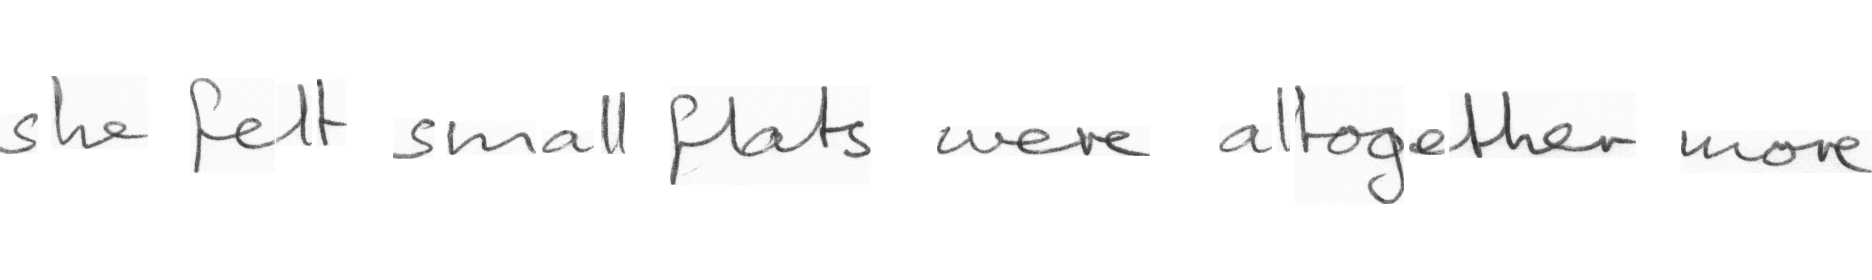 she felt small flats were altogether more